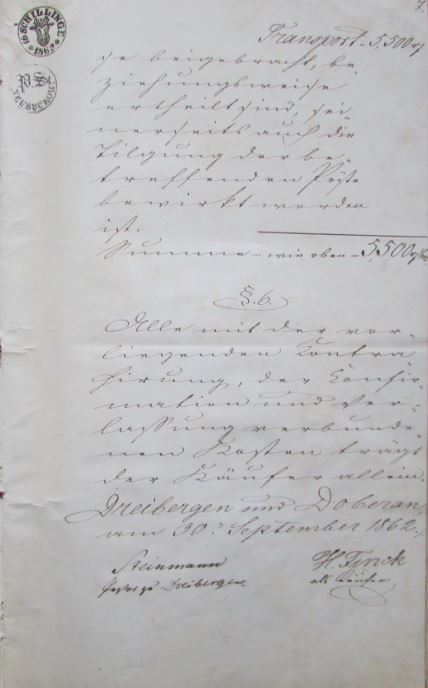 16 SCHILLINGE
1862
7.
Transport - 5,500
se beigebracht, be-
ziehungsweise
ertheilt sind, sei-
nerseits auch die
Tilgung der be-
treffenden Pöste
bewirkt worden
ist.
Summe - wie oben - 5,500
§. 6.
Alle mit der vor-
liegenden Contra-
hirung, der Confir-
mation und Ver-
lassung verbunde-
nen Kosten trägt
der Käufer allein.
Dreibergen und Doberan,
am 30. September 1862.
Steinmann
Pastor zu Dreibergen.
H. Finck
als Käufer